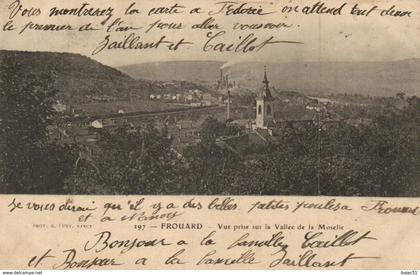 Vous montrerez la carte à Fedorie on attend tout deux
le premier de l'an pour aller vous voir.
Jaillant et Caillot
Je vous dirai qu'il y a des belles petites poules à Frouard
et à Nancy
PHOT. G. CUNY, NANCY
197 - FROUARD - Vue prise sur la Vallée de la Moselle
Bonjour à la famille Caillot
et Bonjour à la famille Jaillant
bajec51